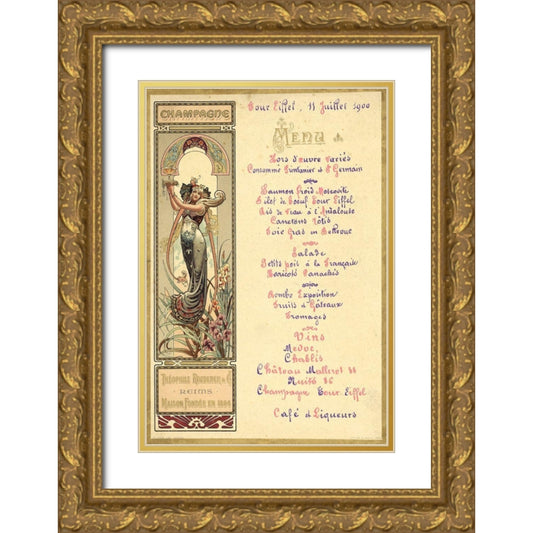 CHAMPAGNE
THÉOPHILE ROEDERER & Co
REIMS
MAISON FONDÉE EN 1864
Tour Eiffel, 11 Juillet 1900
MENU
Hors d'œuvre variés
Consommé Printanier et St Germain
Saumon froid Moscovite
Filet de Bœuf Tour Eiffel
Ris de Veau à l'Andalouse
Canetons Rôtis
Foie Gras en Bellevue
Salade
Petits pois à la Française
Haricots Panachés
Bombe Exposition
Fruits & Gâteaux
Fromages
Vins
Medoc,
Chablis
Château Malleret 88
Nuits 86
Champagne Tour Eiffel
Café & Liqueurs